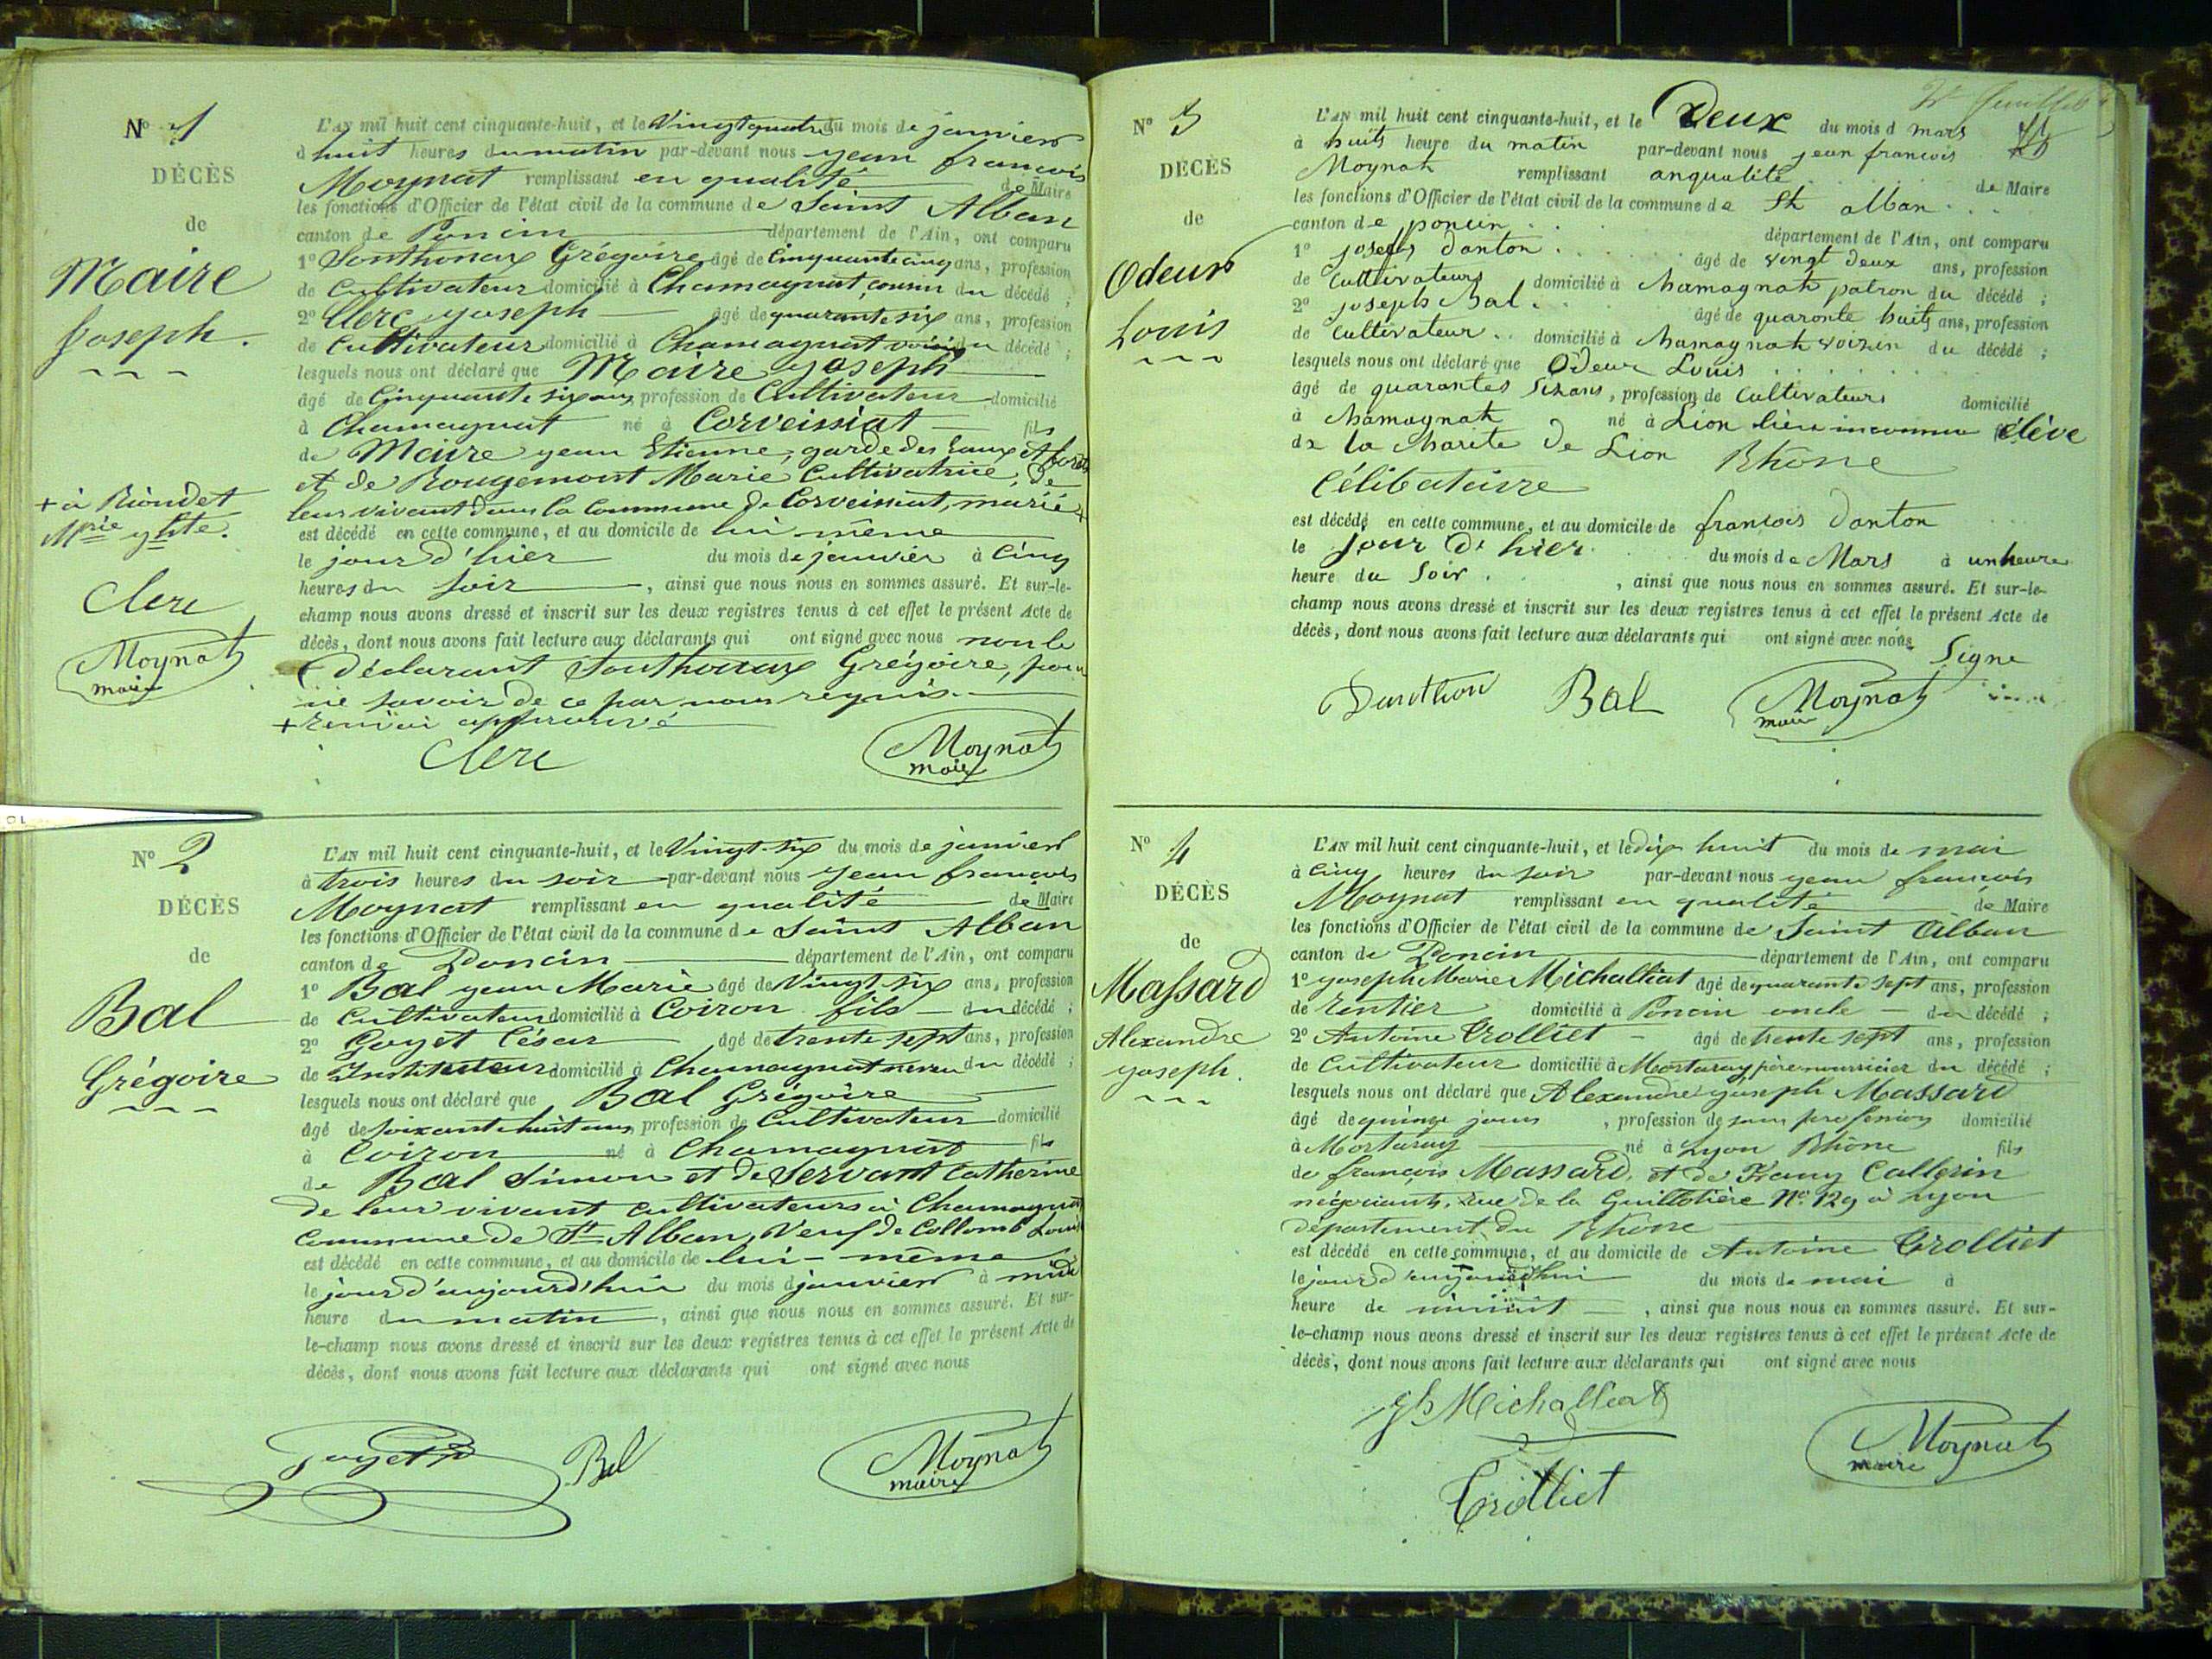 N° 1
DÉCÈS
de
Maire
Joseph.
+ à Riondet
Mie
Clerc
Moynat
maire
L'AN mil huit cent cinquante-huit, et le Vingt quatre du mois de janvier
à huit heures du matin par-devant nous jean francois
Moynat remplissant en qualité de Maire
les fonctions d'Officier de l'état civil de la commune de Saint Alban
canton de Poncin département de l'Ain, ont comparu
1° Sonthonax Grégoire âgé de Cinquante cinq ans, profession
de Cultivateur domicilié à Chamagnat, cousin du décédé ;
2° Clerc joseph âgé de quarante six ans, profession
de Cultivateur domicilié à Chamagnat voisin du décédé ;
lesquels nous ont déclaré que Maire joseph
âgé de Cinquante six ans, profession de Cultivateur domicilié
à Chamagnat né à Corveissiat fils
de Maire jean Etienne, garde des Eaux et forêts
et de Rougemont Marie Cultivatrice, de
leur vivant dans la Commune de Corveissiat, marié +
est décédé en cette commune, et au domicile de lui même
le jour d'hier du mois de janvier à Cinq
heures du soir , ainsi que nous nous en sommes assuré. Et sur-le-
champ nous avons dressé et inscrit sur les deux registres tenus à cet effet le présent Acte de
décès, dont nous avons fait lecture aux déclarants qui ont signé avec nous non le
déclarant Sonthonax Grégoire, pour
ne savoir de ce par nous requis.
+ renvoi approuvé
Clerc Moynat
maire
N° 2
DÉCÈS
de
Bal
Grégoire
L'AN mil huit cent cinquante-huit, et le Vingt-six du mois de janvier
à trois heures du soir par-devant nous jean francois
Moynat remplissant en qualité de Maire
les fonctions d'Officier de l'état civil de la commune de Saint Alban
canton de Poncin département de l'Ain, ont comparu
1° Bal jean Marie âgé de Vingt six ans, profession
de Cultivateur domicilié à Coiron fils du décédé ;
2° Goyet César âgé de trente sept ans, profession
de Instituteur domicilié à Chamagnat neveu du décédé ;
lesquels nous ont déclaré que Bal Grégoire
âgé de soixante huit ans, profession de Cultivateur domicilié
à Coiron né à Chamagnat fils
de Bal Simon et de Servant Catherine
de leur vivant cultivateurs à Chamagnat
Commune de St Alban, Veuf de Collomb Louise
est décédé en cette commune, et au domicile de lui-même
le jour d'aujourd'hui du mois d janvier à
heure du matin , ainsi que nous nous en sommes assuré. Et sur-
le-champ nous avons dressé et inscrit sur les deux registres tenus à cet effet le présent Acte de
décès, dont nous avons fait lecture aux déclarants qui ont signé avec nous
Goyet Bal Moynat
maire
N° 3
DÉCÈS
de
Odeur
Louis
L'AN mil huit cent cinquante-huit, et le Deux du mois d mars
à huits heure du matin par-devant nous jean francois
Moynat remplissant anqualité de Maire
les fonctions d'Officier de l'état civil de la commune de St alban
canton de poncin
département de l'Ain, ont comparu
1° joseph danton âgé de vingt deux ans, profession
de Cultivateurs domicilié à chamagnat patron du décédé ;
2° joseph Bal âgé de quaronte huits ans, profession
de Cultivateur domicilié à chamagnat voizin du décédé ;
lesquels nous ont déclaré que Odeur Louis
âgé de quarantes sixans, profession de Cultivateurs domicilié
à chamagnat né à Lion lieu inconnu élève
de la charite de Lion Rhône
Célibataire
est décédé en cette commune, et au domicile de francois danton
le Jour di hier du mois de Mars à unheure
heure du soir , ainsi que nous nous en sommes assuré. Et sur-le-
champ nous avons dressé et inscrit sur les deux registres tenus à cet effet le présent Acte de
décès, dont nous avons fait lecture aux déclarants qui ont signé avec nous
Signe
Danthon Bal Moynat
maire
N° 4
DÉCÈS
de
Massard
Alexandre
joseph.
L'AN mil huit cent cinquante-huit, et le dix huit du mois de mai
à Cinq heures du soir par-devant nous jean francois
Moynat remplissant en qualité de Maire
les fonctions d'Officier de l'état civil de la commune de Saint Alban
canton de Poncin département de l'Ain, ont comparu
1° joseph Marie Michalliat âgé de quarante sept ans, profession
de rentier domicilié à Poncin oncle du décédé ;
2° Antoine Trolliet âgé de trente sept ans, profession
de Cultivateur domicilié à Mortaray père nourricier du décédé ;
lesquels nous ont déclaré que Alexandre joseph Massard
âgé de quinze jours , profession de sans profession domicilié
à Mortaray né à Lyon Rhône fils
de françois Massard, et de Fany Callerin
négociants, rue de la Guillotière N° 129 à Lyon
département du Rhône
est décédé en cette commune, et au domicile de Antoine Trolliet
le jour d'aujourd'hui du mois de mai à
heure de minuit , ainsi que nous nous en sommes assuré. Et sur-
le-champ nous avons dressé et inscrit sur les deux registres tenus à cet effet le présent Acte de
décès, dont nous avons fait lecture aux déclarants qui ont signé avec nous
Michalliat
Moynat
maire
Trolliet